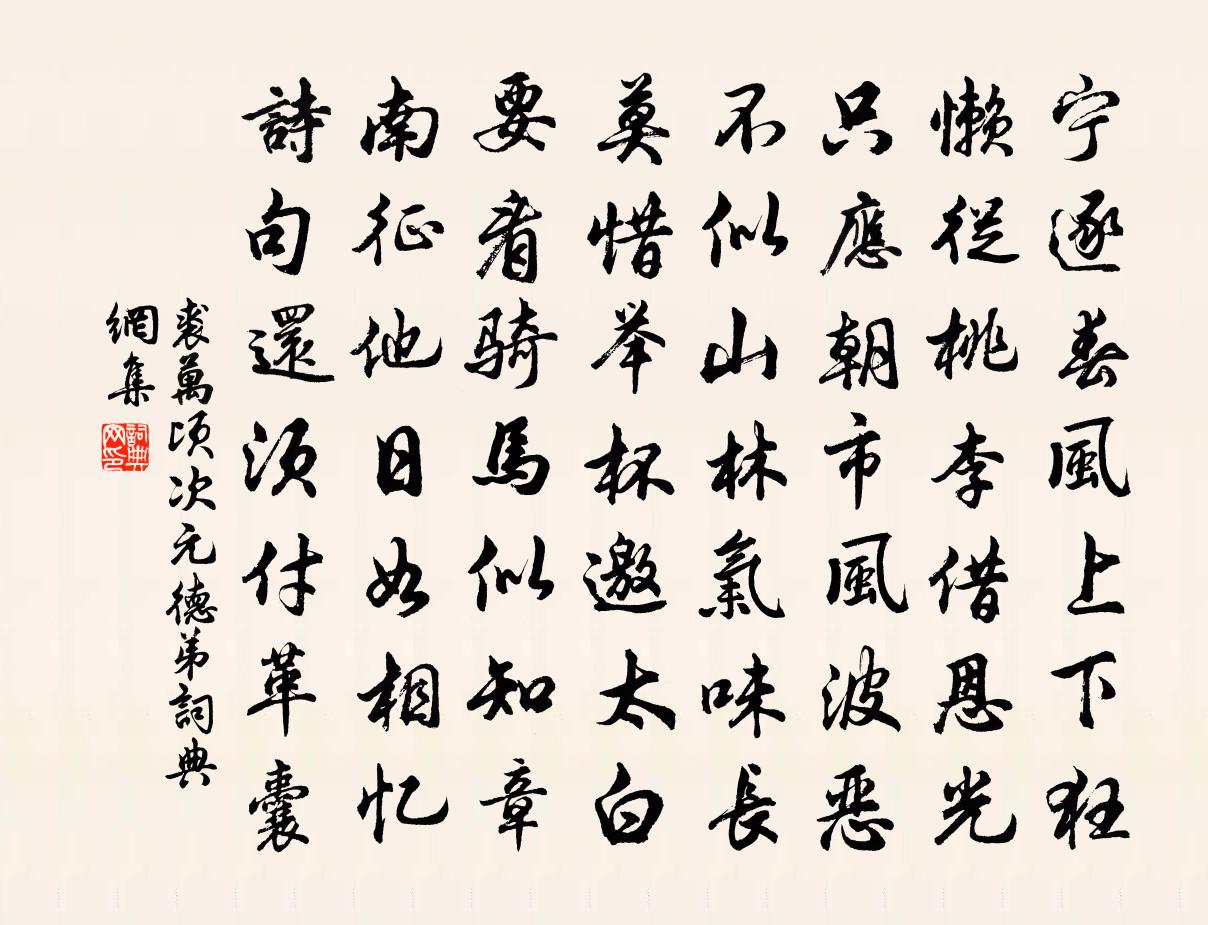 宁逐春風上下狂
懒從桃李借恩光
只應朝市風波惡
不似山林氣味長
莫惜举杯邀太白
要看骑馬似知章
南征他日如相忆
詩句還须付革囊
裘萬顷次元德弟詞典
網集
詞典
网印